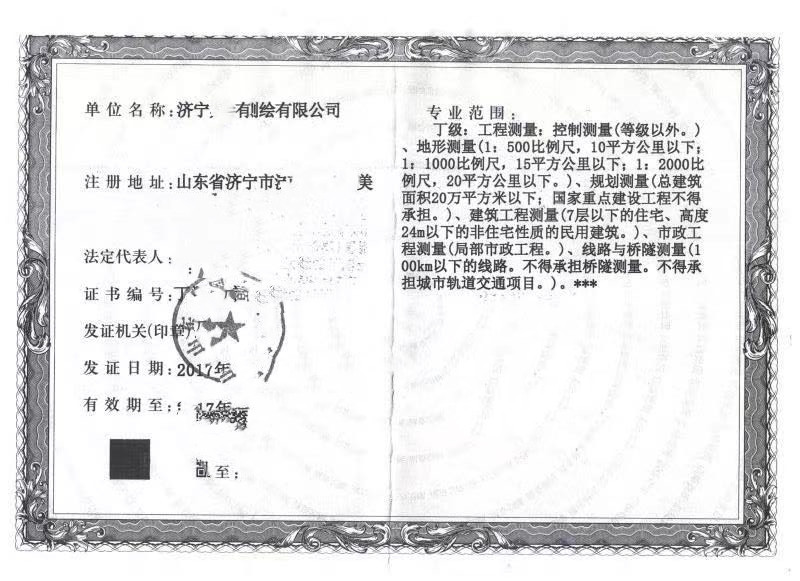 单位名称:济宁 有测绘有限公司
注册地址:山东省济宁市 美
法定代表人:
证书编号:丁
发证机关(印章)
发证日期:2017年
有效期至: 17年
至:
专业范围:
丁级:工程测量:控制测量(等级以外。)
、地形测量(1:500比例尺,10平方公里以下;
1:1000比例尺,15平方公里以下;1:2000比
例尺,20平方公里以下。)、规划测量(总建筑
面积20万平方米以下;国家重点建设工程不得
承担。)、建筑工程测量(7层以下的住宅、高度
24m以下的非住宅性质的民用建筑。)、市政工
程测量(局部市政工程。)、线路与桥隧测量(1
00km以下的线路。不得承担桥隧测量。不得承
担城市轨道交通项目。)。***